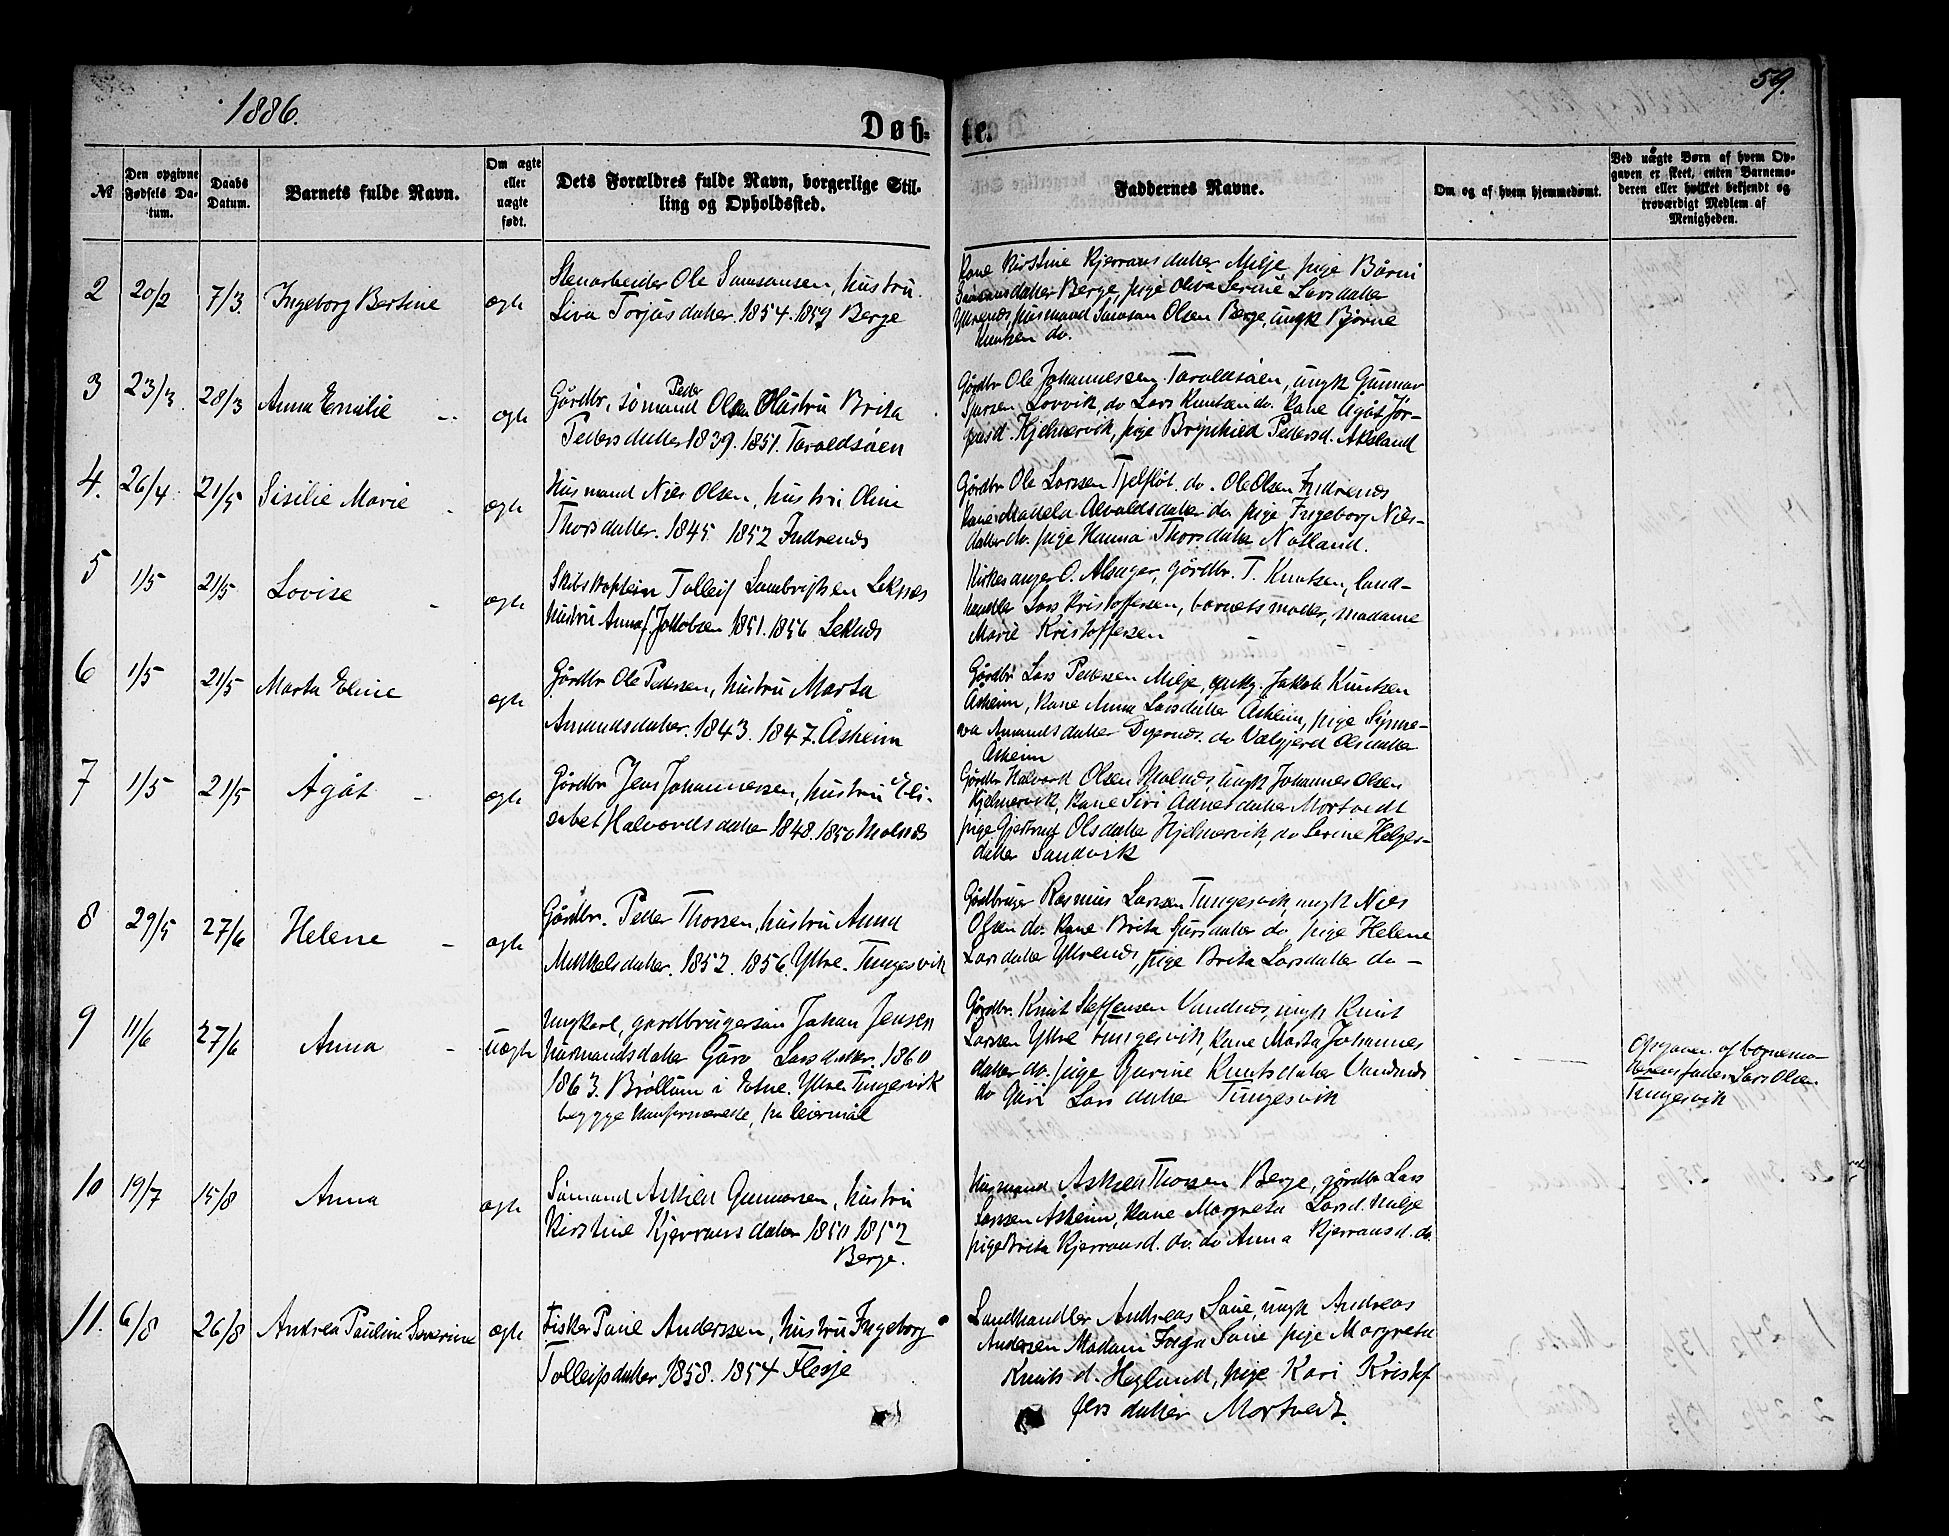 1886.
59.
Døb-
te.
№
Den opgivne Fødsels Datum.
Daabs Datum.
Barnets fulde Navn.
Om ægte eller uægte født.
Dets Forældres fulde Navn, borgerlige Stilling og Opholdssted.
Faddernes Navne.
Om og af hvem hjemmedøbt.
Ved uægte Børn af hvem Opgaven er skeet, enten Barnemoderen eller hvilket bekjendt og troværdigt Medlem af Menigheden.
2 20/2 7/3. Ingeborg Bertine ægte
Stenarbeider Ole Samsonsen, hustru
Siva Torjusdatter. 1854. 1859 Berge
Kone Kirstine Kjerransdatter Milje, pige Børni
Samsonsdatter Berge, pige Oliva Serine Larsdatter
Ytrenes, husmand Samson Olsen Berge, ungk Bjørne
Knutsen do.
3 23/3 28/3 Anna Emilie ægte
Gårdbr, sømand Peder Olsen Hustru Brita
Pedersdatter 1839. 1851. Taraldsøen
Gårdbr Ole Johannessen Taraldsøen, ungk Gunnar
Sjursen Lovvik, do Lars Knutsen do. kone Ågåt Jør-
gensd. Hjelmervik, pige Brynhild Pedersd. Aksland
4. 26/4 21/5 Sisilie Marie ægte
Husmand Nils Olsen, hustru Oline
Thorsdatter. 1845 1852 Indrenes
Gårdbr Ole Larssen Tjelflåt. do. Ole Olsen Indrenes
kone Madela Alvaldsdatter do pige Ingeborg Nils-
datter do. pige Hanna Thorsdatter Notland.
5 1/5 21/5 Lovise ægte
Skibskaptein Tolleif Lambrigtsen Leknes
hustru Anna f. Jakobsen 1851. 1856 Leknes
Kirkesanger O. Alsager, gårdbr. T. Knutsen, land-
handler Lars Kristoffersen, barnets moder, madame
Marie Kristoffersen
6 1/5 21/5 Marta Eline ægte
Gårdbr Ole Pedersen, hustru Marta
Amundsdatter. 1843. 1847. Åsheim
Gårdbr Lars Pedersen Milje, ungk. Jakob Knutsen
Åsheim, kone Anna Larsdatter Åsheim, pige Synne-
va Amundsdatter Dyernes. do Valgjerd Olsdatter
Åsheim
7 1/5 21/5 Ågåt ægte
Gårdbr Jens Johannessen, hustru Eli-
sabet Halvordsdatter 1848. 1850 Molnes
Gårdbr Halvord Olsen Molnes, ungk Johannes Olsen
Hjelmervik, kone Siri Adnesdatter Mortvedt
pige Gjertrud Olsdatter Hjelmervik, do Serine Helges-
datter Sandvik
8 29/5 27/6 Helene ægte
Gårdbr. Peder Thorsen, hustru Anna
Mikkelsdatter. 1852. 1856. Ytre. Tungesvik
Gårdbruger Rasmus Larsen Tungesvik, ungk Nils
Olsen do. kone Brita Sjursdatter do pige Helene
Larsdatter Ytrenes, pige Brita Larsdatter do -
9 11/6 27/6 Anna uægte
Ungkarl, gardbrugersøn Johan Jensen
husmandsdatter Guro Larsdatter. 1860
1863. Brøltun i Etne. Ytre Tungesvik
beggge konfirmerede, 1ste leiermål
Gårdbr. Knut Steffensen Vandnes, ungk Knut
Larssen Ytre Tungesvik, kone Marta Johannes
datter do. pige Gurine Knutsdatter Vandnes
do Guri Larsdatter Tungesvik
Opgaven af barnemo-
derens fader Lars Olsen
Tungesvik
10 19/7 15/8 Anna ægte
Sømand Askild Gunnarsen, hustru
Kirstine Kjerransdatter 1850 1852
Berge.
Husmand Askild Thorsen Berge, gårdbr Lars
Larssen Åsheim, kone Margreta Larsd. Milje
pige Brita Kjerransd. do. do Anna Kjerransd. do.
11. 6/8 26/8 Andrea Pauline Severine ægte
Fisker Paul Anderssen, hustru Ingeborg
Tolleifsdatter 1858. 1854 Flesje
Landhandler Andreas Saue, ungk Andreas
Andersen Madam Inga Saue pige Margreta
Knutsd. Heglund, pige Kari Kristof
fersdatter Mortvedt.